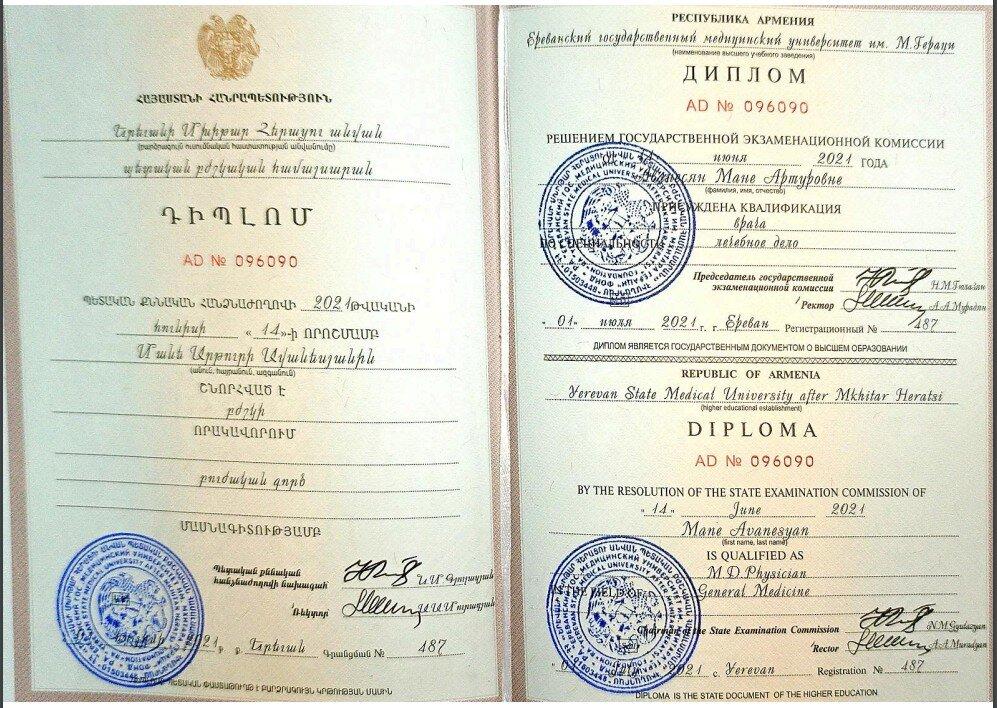 ՀԱՅԱՍՏԱՆԻ ՀԱՆՐԱՊԵՏՈՒԹՅՈՒՆ
Երևանի Մխիթար Հերացու անվան
(բարձրագույն ուսումնական հաստատության անվանումը)
պետական բժշկական համալսարան
ԴԻՊԼՈՄ
AD № 096090
ՊԵՏԱԿԱՆ ՔՆՆԱԿԱՆ ՀԱՆՁՆԱԺՈՂՈՎԻ 2021 ԹՎԱԿԱՆԻ
հունիսի « 14 »-ի ՈՐՈՇՄԱՄԲ
Մանե Արթուրի Ավանեսյանին
(անուն, հայրանուն, ազգանուն)
ՇՆՈՐՀՎԱԾ Է
բժշկի
ՈՐԱԿԱՎՈՐՈՒՄ
բուժական գործ
ՄԱՍՆԱԳԻՏՈՒԹՅԱՄԲ
Պետական քննական
հանձնաժողովի նախագահ
Ռեկտոր
2021 թ. ք. Երևան Գրանցման № 487
ՊԵՏԱԿԱՆ ՓԱՍՏԱԹՈՒՂԹ Է ԲԱՐՁՐԱԳՈՒՅՆ ԿՐԹՈՒԹՅԱՆ ՄԱՍԻՆ
РЕСПУБЛИКА АРМЕНИЯ
Ереванский государственный медицинский университет им. М.Гераци
(наименование высшего учебного заведения)
ДИПЛОМ
AD № 096090
РЕШЕНИЕМ ГОСУДАРСТВЕННОЙ ЭКЗАМЕНАЦИОННОЙ КОМИССИИ
июня 2021 ГОДА
Аванесян Мане Артуровне
(фамилия, имя, отчество)
ПРИСУЖДЕНА КВАЛИФИКАЦИЯ
врача
ПО СПЕЦИАЛЬНОСТИ лечебное дело
Председатель государственной
экзаменационной комиссии
Ректор А.А.Мурадян
"01" июля 2021 г. г. Ереван Регистрационный № 487
ДИПЛОМ ЯВЛЯЕТСЯ ГОСУДАРСТВЕННЫМ ДОКУМЕНТОМ О ВЫСШЕМ ОБРАЗОВАНИИ
REPUBLIC OF ARMENIA
Yerevan State Medical University after Mkhitar Heratsi
(higher educational establishment)
DIPLOMA
AD № 096090
BY THE RESOLUTION OF THE STATE EXAMINATION COMMISSION OF
"14" June 2021
Mane Avanesyan
(first name, last name)
IS QUALIFIED AS
M.D.Physician
IN THE FIELD OF General Medicine
Chairman of the State Examination Commission
Rector A.A.Muradyan
2021 c. Yerevan Registration № 487
DIPLOMA IS THE STATE DOCUMENT OF THE HIGHER EDUCATION